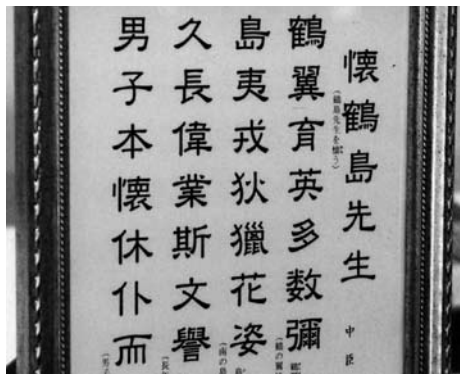 懐鶴島先生
(鶴島先生を懐う)
中臣
鶴翼育英多数彌
島夷戎狄獵花姿
久長偉業斯文譽
男子本懐休仆而